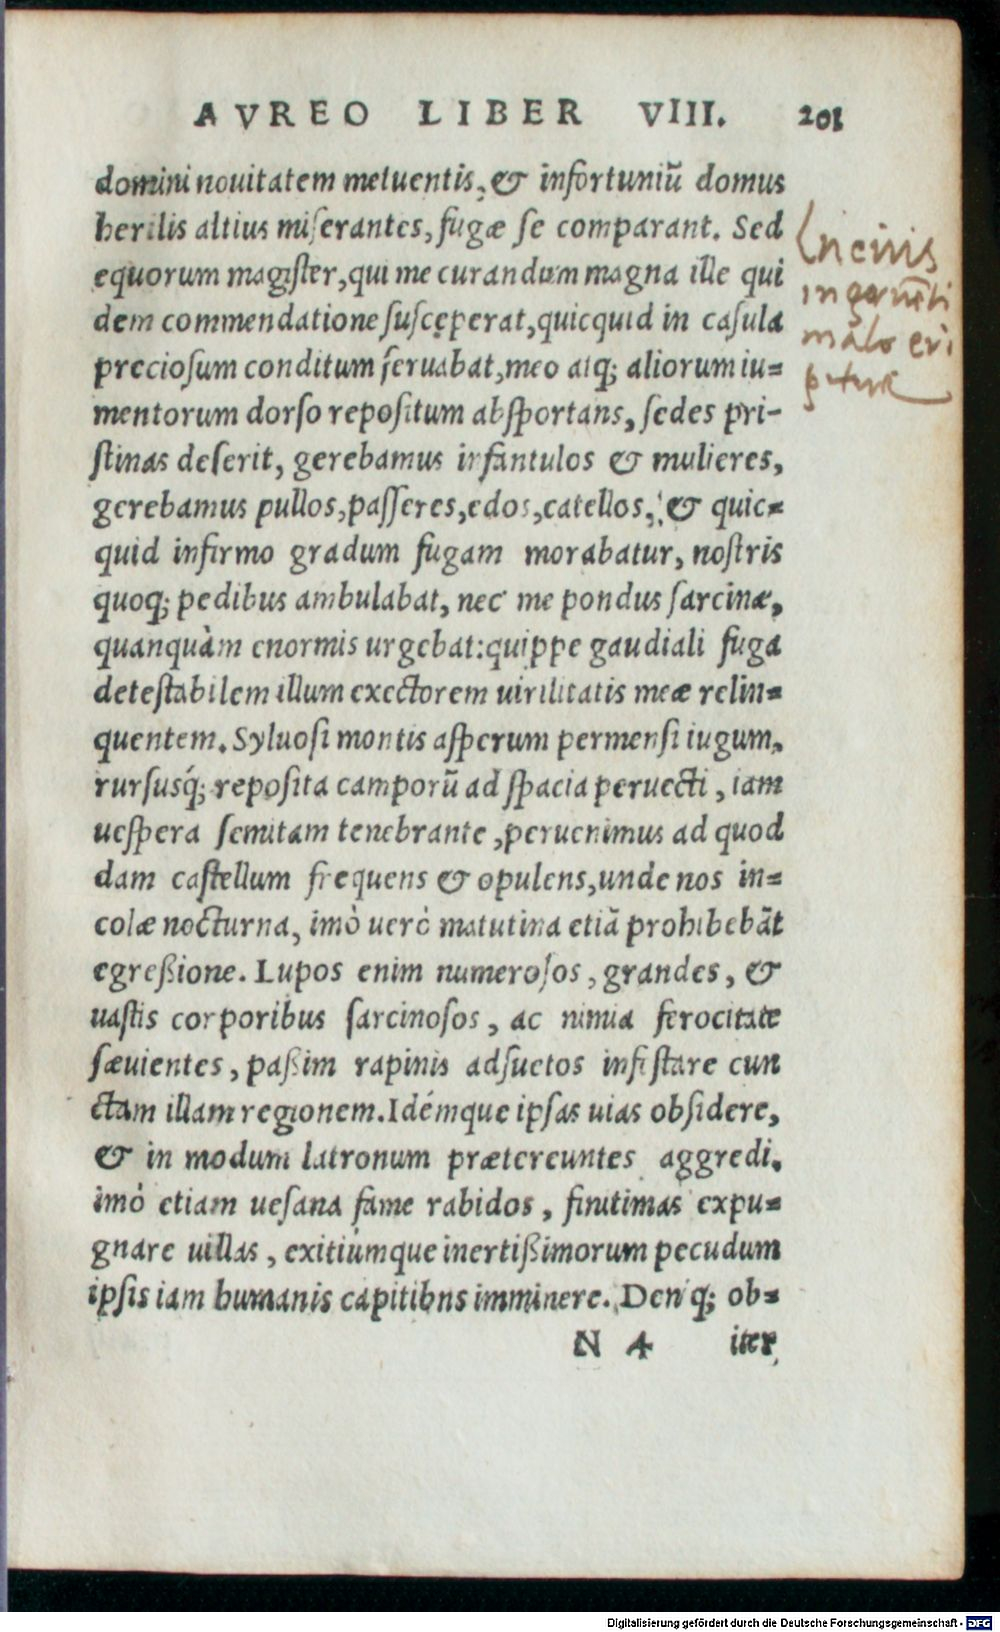 AVREO LIBER VIII. 201
domini nouitatem metuentis, & infortuniū domus
herilis altius miserantes, fugæ se comparant. Sed
equorum magister, qui me curandum magna ille qui
dem commendatione suscęperat, quicquid in casula
preciosum conditum seruabat, meo atq; aliorum iu-
mentorum dorso repositum absportans, sedes pri-
stinas deserit, gerebamus infantulos & mulieres,
gerebamus pullos, passeres, edos, catellos, & quic-
quid infirmo gradum fugam morabatur, nostris
quoq; pedibus ambulabat, nec me pondus sarcinæ,
quanquàm enormis urgebat: quippe gaudiali fuga
detestabilem illum exectorem uirilitatis meæ relin-
quentem. Syluosi montis asperum permensi iugum,
rursusq́; reposita camporū ad spacia peruecti, iam
uespera semitam tenebrante, peruenimus ad quod
dam castellum frequens & opulens, unde nos in-
colæ nocturna, imò uerò matutina etiā prohibebāt
egreßione. Lupos enim numerosos, grandes, &
uastis corporibus sarcinosos, ac nimia ferocitate
sæuientes, paßim rapinis adsuetos infestare cun
ctam illam regionem. Idémque ipsas uias obsidere,
& in modum latronum prætereuntes aggredi.
imò etiam uesana fame rabidos, finitimas expu-
gnare uillas, exitiúmque inertißimorum pecudum
ipsis iam humanis capitibns imminere. Denq; ob-
N 4 iter
malo eri
Digitalisierung gefördert durch die Deutsche Forschungsgemeinschaft - DFG